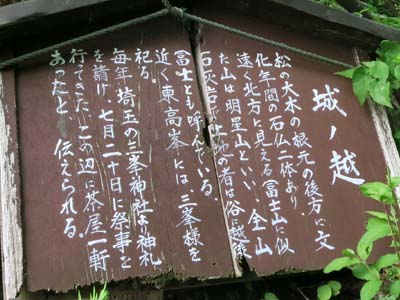 城ノ越
松の大木の根元の後方に文
化年間の石仏二体あり、
遠く北方に見える冨士山に似
た山は明星山といい、全山
石灰岩で土地の者は谷に越後
冨士とも呼んでいる。
近く東高峯には、三峯様を
祀る。
毎年埼玉の三峯神社より神札
を請け、七月二十日に祭事を
行てきた、この辺に茶屋一軒
あったと、伝えられる。